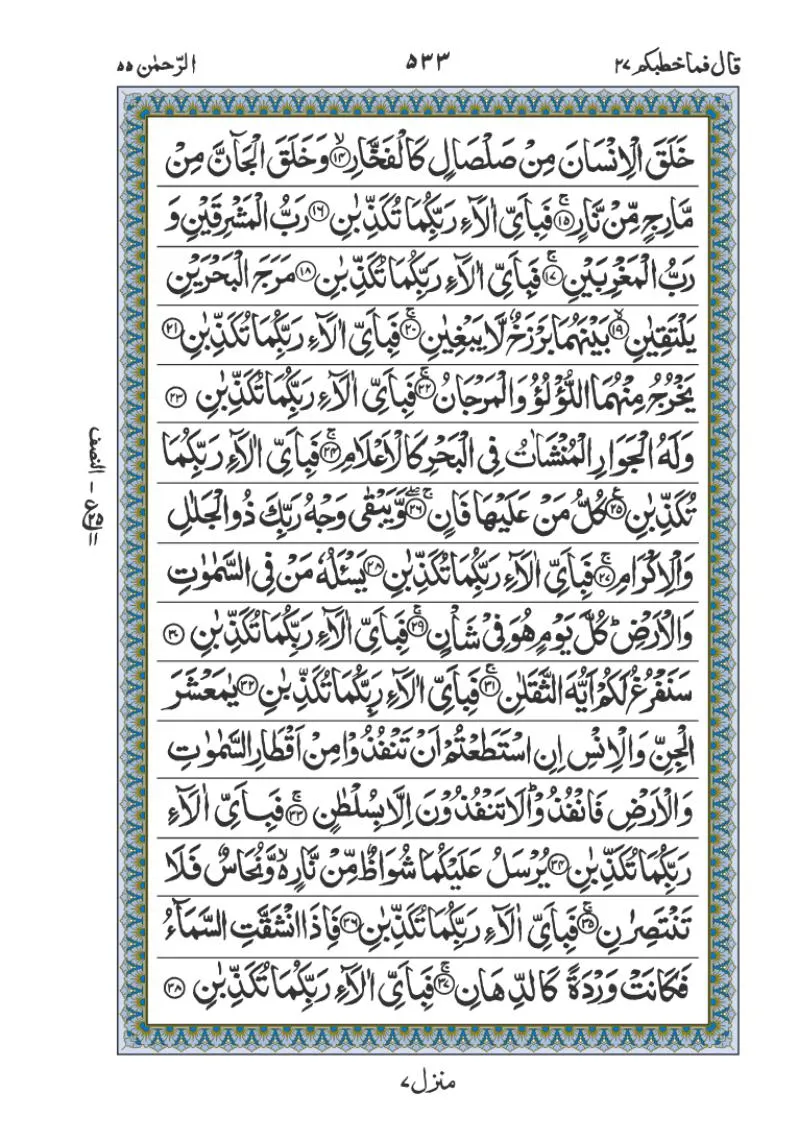 قال فما خطبكم ٢٧
٥٣٣
الرّحمٰن ٥٥
خَلَقَ الۡاِنۡسَانَ مِنۡ صَلۡصَالٍ كَالۡفَخَّارِۙ‏﴿۱۴﴾ وَخَلَقَ الۡجَآنَّ مِنۡ
مَّارِجٍ مِّنۡ نَّارٍۚ‏﴿۱۵﴾ فَبِاَىِّ اٰلَاۤءِ رَبِّكُمَا تُكَذِّبٰنِ‏﴿۱۶﴾ رَبُّ الۡمَشۡرِقَيۡنِ وَ
رَبُّ الۡمَغۡرِبَيۡنِۚ‏﴿۱۷﴾ فَبِاَىِّ اٰلَاۤءِ رَبِّكُمَا تُكَذِّبٰنِ‏﴿۱۸﴾ مَرَجَ الۡبَحۡرَيۡنِ
يَلۡتَقِيٰنِۙ‏﴿۱۹﴾ بَيۡنَهُمَا بَرۡزَخٌ لَّا يَبۡغِيٰنِۚ‏﴿۲۰﴾ فَبِاَىِّ اٰلَاۤءِ رَبِّكُمَا تُكَذِّبٰنِ‏﴿۲۱﴾
يَخۡرُجُ مِنۡهُمَا اللُّؤۡلُؤُ وَالۡمَرۡجَانُۚ‏﴿۲۲﴾ فَبِاَىِّ اٰلَاۤءِ رَبِّكُمَا تُكَذِّبٰنِ‏﴿۲۳﴾
وَلَهُ الۡجَوَارِ الۡمُنۡشَاٰتُ فِى الۡبَحۡرِ كَالۡاَعۡلَامِۚ‏﴿۲۴﴾ فَبِاَىِّ اٰلَاۤءِ رَبِّكُمَا
تُكَذِّبٰنِ‏﴿۲۵﴾ كُلُّ مَنۡ عَلَيۡهَا فَانٍۚ  ۖ‏﴿۲۶﴾ وَّيَبۡقٰى وَجۡهُ رَبِّكَ ذُو الۡجَلٰلِ
وَالۡاِكۡرَامِۚ‏﴿۲۷﴾ فَبِاَىِّ اٰلَاۤءِ رَبِّكُمَا تُكَذِّبٰنِ‏﴿۲۸﴾ يَسۡـَٔلُهٗ مَنۡ فِى السَّمٰوٰتِ
وَالۡاَرۡضِؕ كُلَّ يَوۡمٍ هُوَ فِىۡ شَاۡنٍۚ‏﴿۲۹﴾ فَبِاَىِّ اٰلَاۤءِ رَبِّكُمَا تُكَذِّبٰنِ‏﴿۳۰﴾
سَنَفۡرُغُ لَكُمۡ اَيُّهَ الثَّقَلٰنِۚ‏﴿۳۱﴾ فَبِاَىِّ اٰلَاۤءِ رَبِّكُمَا تُكَذِّبٰنِ‏﴿۳۲﴾ يٰمَعۡشَرَ
الۡجِنِّ وَالۡاِنۡسِ اِنِ اسۡتَطَعۡتُمۡ اَنۡ تَنۡفُذُوۡا مِنۡ اَقۡطَارِ السَّمٰوٰتِ
وَالۡاَرۡضِ فَانۡفُذُوۡاؕ لَا تَنۡفُذُوۡنَ اِلَّا بِسُلۡطٰنٍۚ‏﴿۳۳﴾ فَبِاَىِّ اٰلَاۤءِ
رَبِّكُمَا تُكَذِّبٰنِ‏﴿۳۴﴾ يُرۡسَلُ عَلَيۡكُمَا شُوَاظٌ مِّنۡ نَّارٍ ۙ وَّنُحَاسٌ فَلَا
تَنۡتَصِرٰنِۚ‏﴿۳۵﴾ فَبِاَىِّ اٰلَاۤءِ رَبِّكُمَا تُكَذِّبٰنِ‏﴿۳۶﴾ فَاِذَا انْشَقَّتِ السَّمَآءُ
فَكَانَتۡ وَرۡدَةً كَالدِّهَانِۚ‏﴿۳۷﴾ فَبِاَىِّ اٰلَاۤءِ رَبِّكُمَا تُكَذِّبٰنِ‏﴿۳۸﴾
النصف
منزل ٧